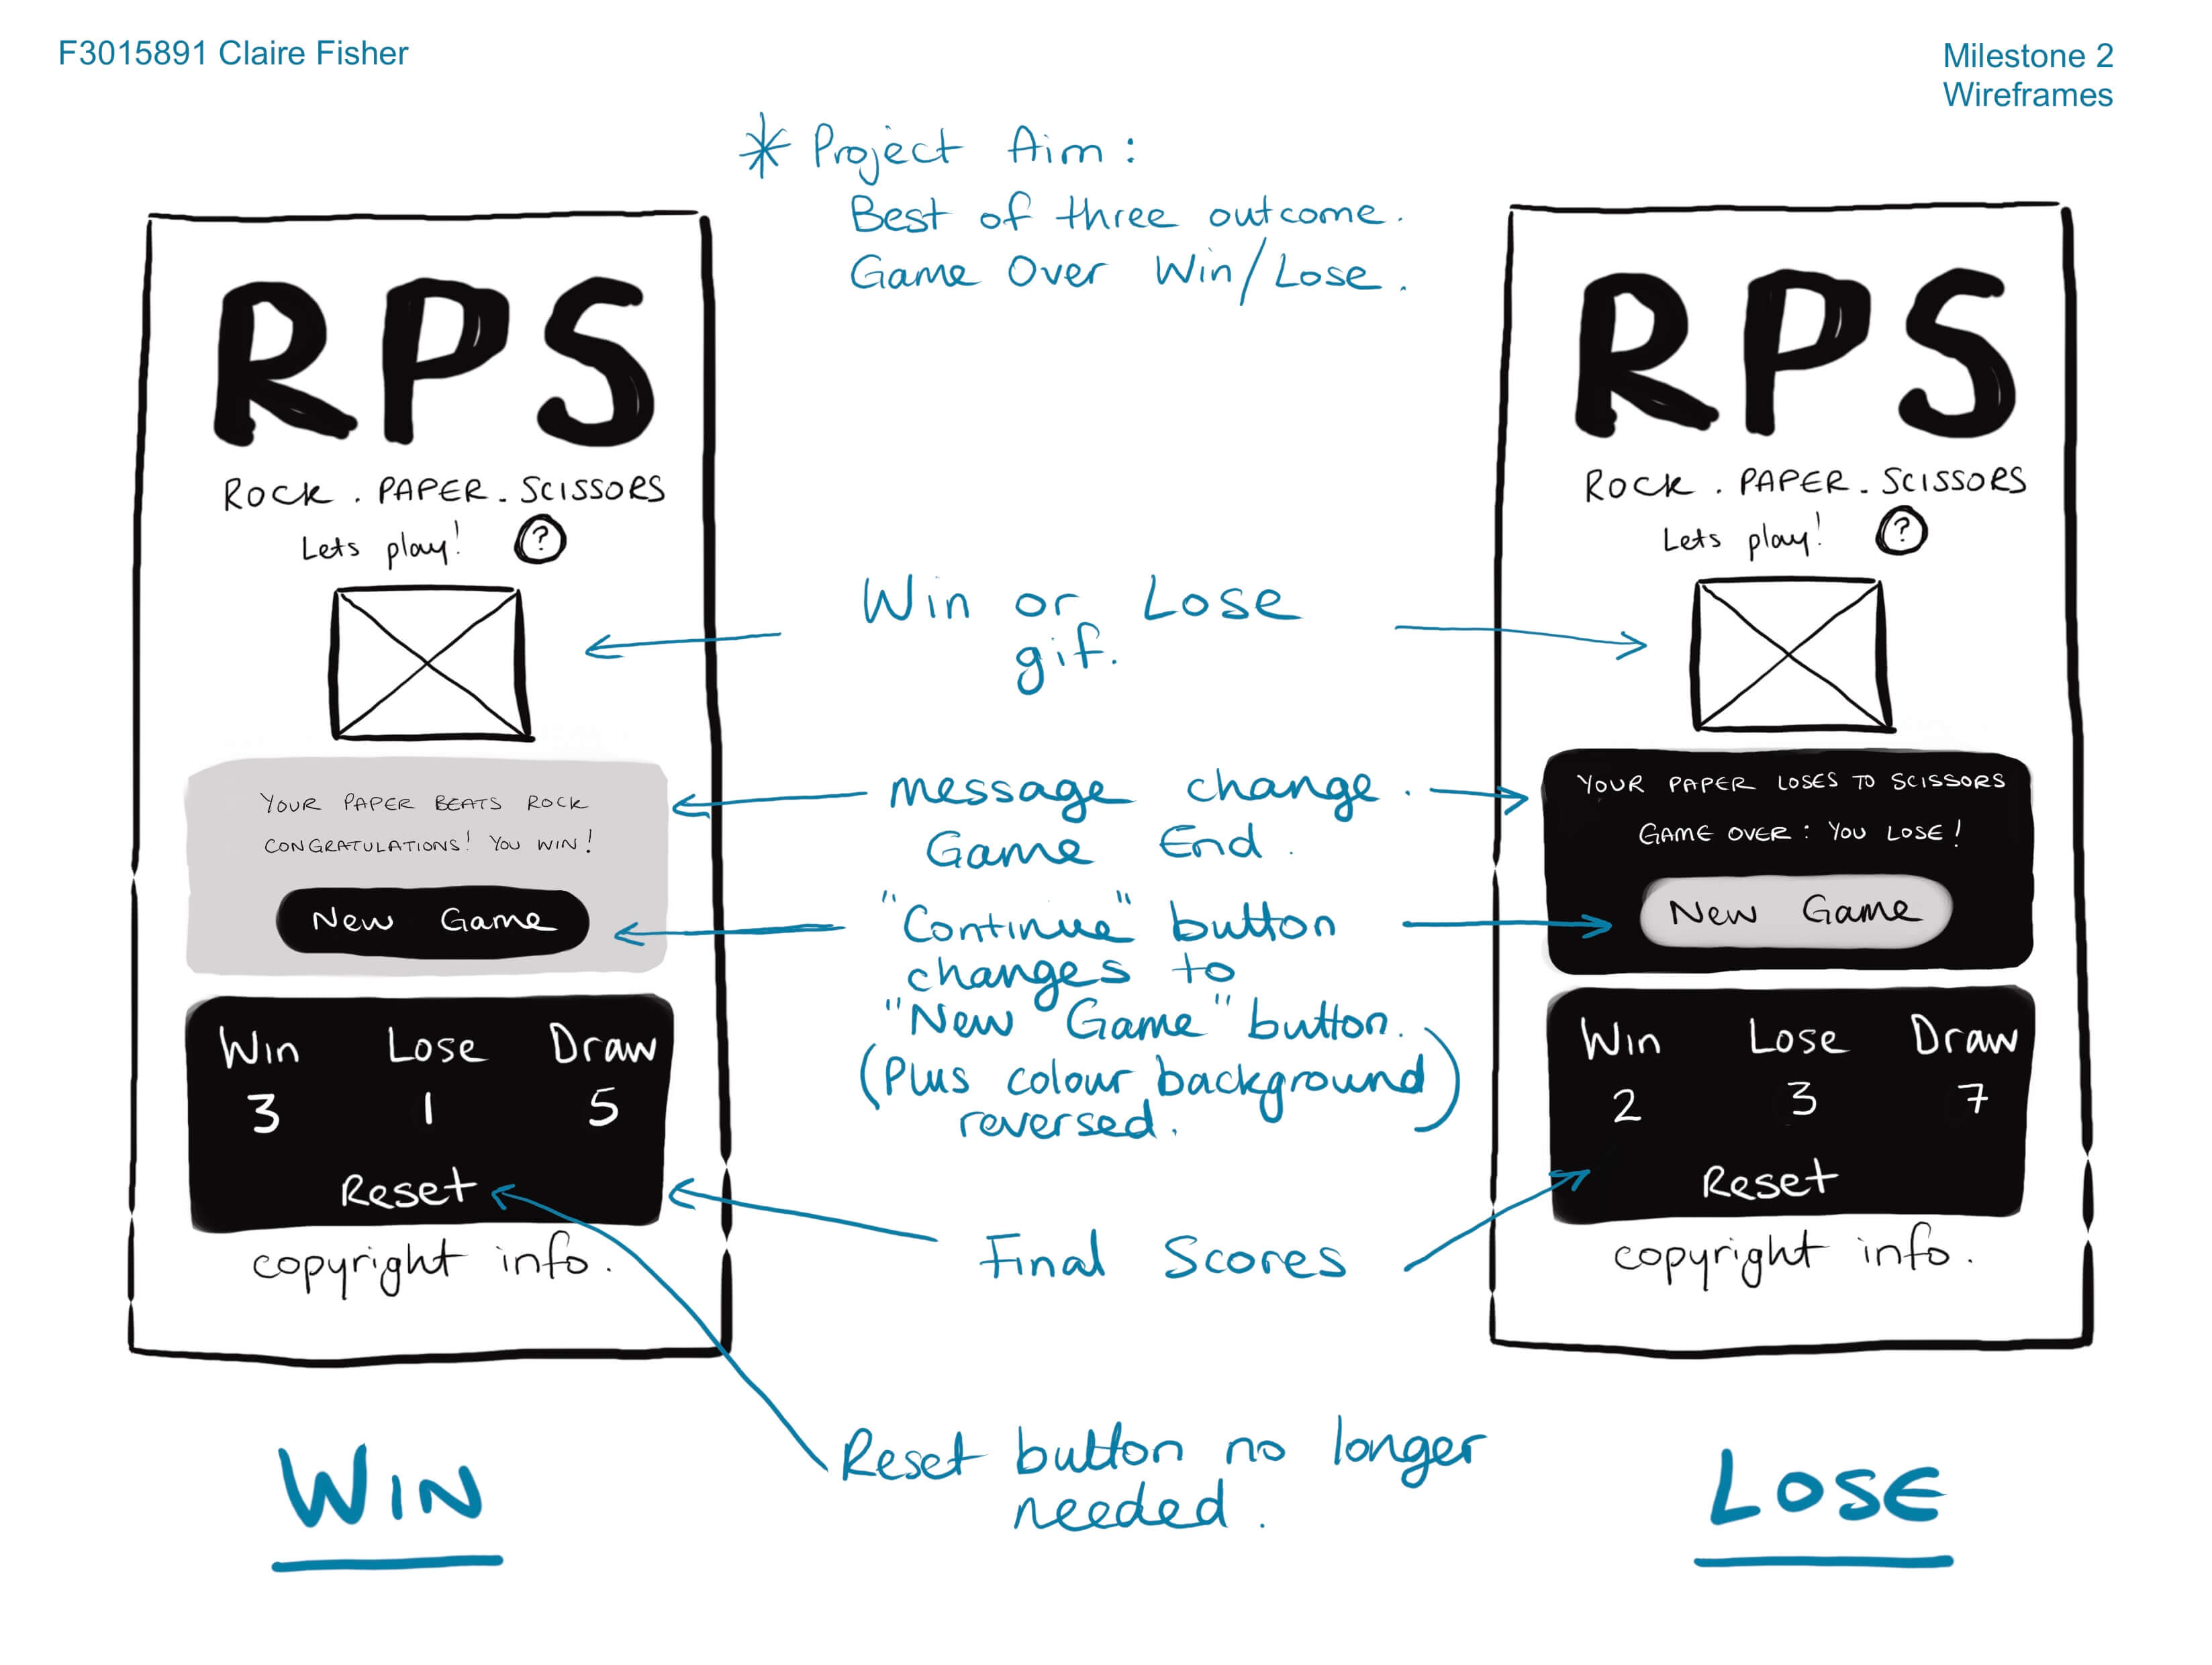 F3015891 Claire Fisher
Milestone 2
Wireframes
* Project Aim:
Best of three outcome.
Game Over Win/Lose.
RPS
ROCK . PAPER . SCISSORS
Lets play! ?
YOUR PAPER BEATS ROCK
CONGRATULATIONS! YOU WIN!
New Game
Win Lose Draw
3 1 5
Reset
copyright info.
WIN
Win or Lose
gif.
message change.
Game End.
"Continue" button
changes to
"New Game" button.
(Plus colour background
reversed.)
Final Scores
Reset button no longer
needed.
RPS
ROCK . PAPER . SCISSORS
Lets play! ?
YOUR PAPER LOSES TO SCISSORS
GAME OVER : YOU LOSE!
New Game
Win Lose Draw
2 3 7
Reset
copyright info.
LOSE